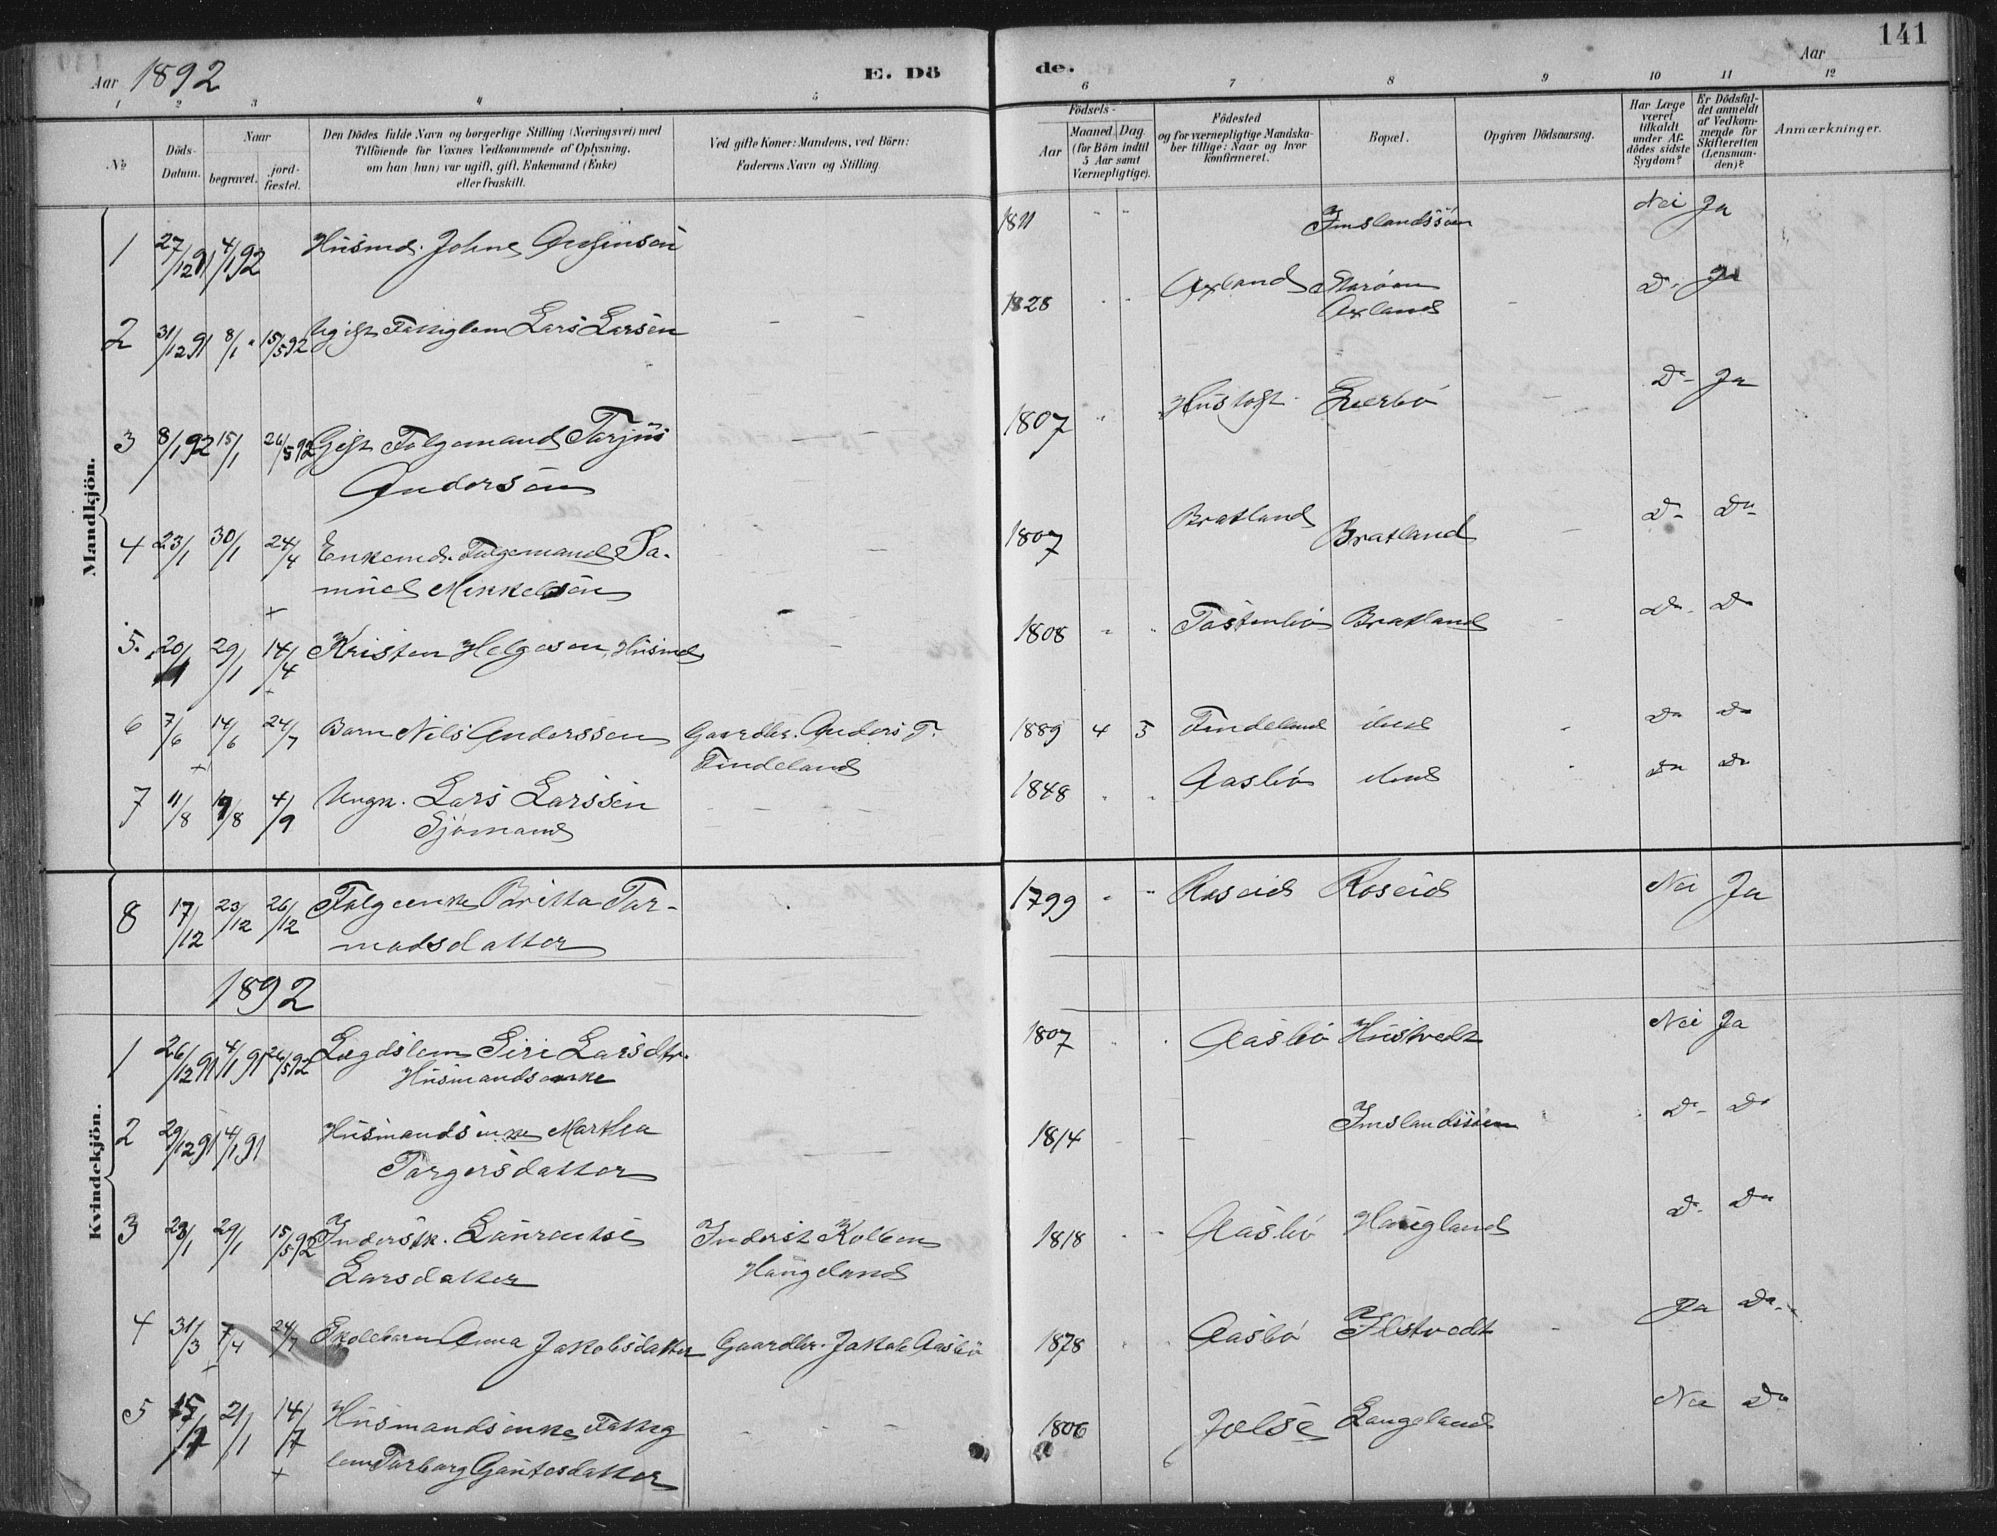 141
Aar 1892
E. Dö
de.
Aar
1 2 3 4 5 6 7 8 9 10 11 12
No
Döds-
Datum.
Naar
begravet.
jord-
fæstet.
Den Dödes fulde Navn og borgerlige Stilling (Næringsvei) med
Tilföiende for Voxnes Vedkommende af Oplysning,
om han (hun) var ugift, gift, Enkemand (Enke)
eller fraskilt.
Ved gifte Koner: Mandens, ved Börn:
Faderens Navn og Stilling
Födsels-
Aar
Maaned Dag
(for Börn indtil
5 Aar samt
Værnepligtige).
Födested
og for værnepligtige Mandska-
ber tillige: Naar og hvor
konfirmeret.
Bopæl.
Opgiven Dödsaarsag.
Har Læge
været
tilkaldt
under Af-
dödes sidste
Sygdom?
Er Dödsfal-
det anmeldt
af Vedkom-
mende for
Skifteretten
(Lensman-
den)?
Anmærkninger.
Mandkjön.
1 27/12 91 4/1 92 Husmd. Johne 1811 " " Imslandssöen Nei Ja
2 31/12 91 8/1 " 15/5 92 Ugift Fattiglem Lars Larsen - - 1828 " " Axland
Axland D- Ja
3 8/1 92 15/1 26/5 92 Gift Folgemand Torjus
Andersen 1807 " Hustoft D- Ja
4 23/1 30/1 24/4 Enkemd. Folgemand Sa-
muel Mikkelsen 1807 Bratland Bratland - Do Do
5. 20/1 29/1 14/4 Kristen Helgesen, Husmd 1808 " " Bratland Do Do
6 7/6 14/6 24/7 Barn Nils Anderssen Gaardbr. Anders T.
Tindeland 1889 4 5 Tindeland ibid Do Do
7 11/8 /8 4/9 Ungk. Lars Larssen
Sjömand 1848 " " Aasbö ibid Do Do
8 17/12 23/12 26/12 Folgeenke Britta Tor-
modsdatter 1799 " " Roseid Roseid Nei Ja
1892
Kvindekjön.
1 26/12 91 4/1 91 26/5 92 Lægdslem Siri Larsdtr.
Husmandsenke 1807 " " Aasbö Hustvedt Nei Ja
2 29/12 91 4/1 91 Husmandsenke Martha
Torgersdatter 1814 - - Imslandssöen Do Do
3 23/1 29/1 15/5 92 Inderstk. Laurentse
Larsdatter Inderst Kolben
Haugeland 1818 " " Aasbö Haugland Do Do
4 31/3 7/4 24/7 Skolebarn Anna Jakobsdatter Gaardbr. Jakob Aasbö 1878 " " Aasbö Ilstvedt - Ja Do
5 15/1 21/1 14/7 Husmandsenke Fattig
lem Torborg Gautesdatter - - - 1806 Jelse Langeland Nei Do